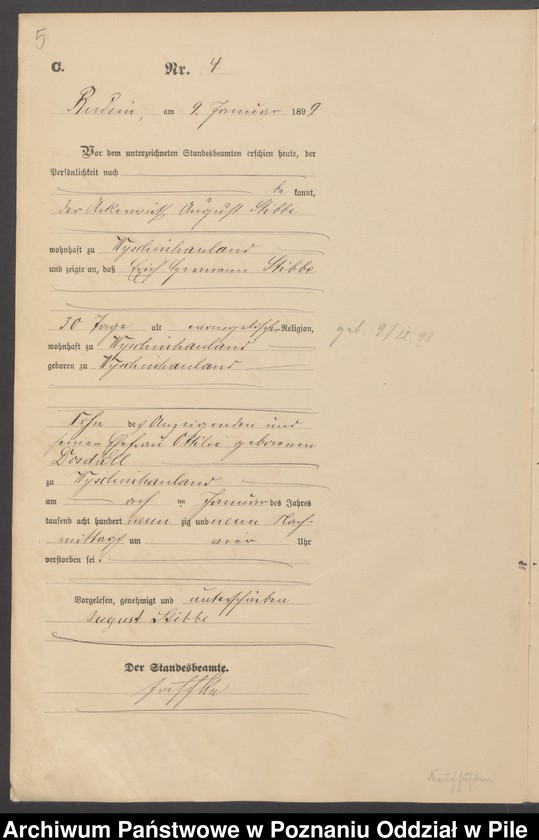 5
C. Nr. 4
am 9. Januar 1899
Vor dem unterzeichneten Standesbeamten erschien heute, der
Persönlichkeit nach
be kannt,
der August Stibbe
wohnhaft zu Wyschinihauland
und zeigte an, daß Erich Hermann Stibbe
30 Tage alt evangelischer Religion,
wohnhaft zu Wyschinihauland
geboren zu Wyschinihauland
geb. 9/12. 98
Sohn des Anzeigenden und
seiner Ehefrau Ottilie geborenen
Dosdall
zu Wyschinihauland
am acht im Januar des Jahres
tausend acht hundert neun zig und neun Nach-
mittags um vier Uhr
verstorben sei.
Vorgelesen, genehmigt und unterschrieben
August Stibbe
Der Standesbeamte.
Archiwum Państwowe w Poznaniu Oddział w Pile